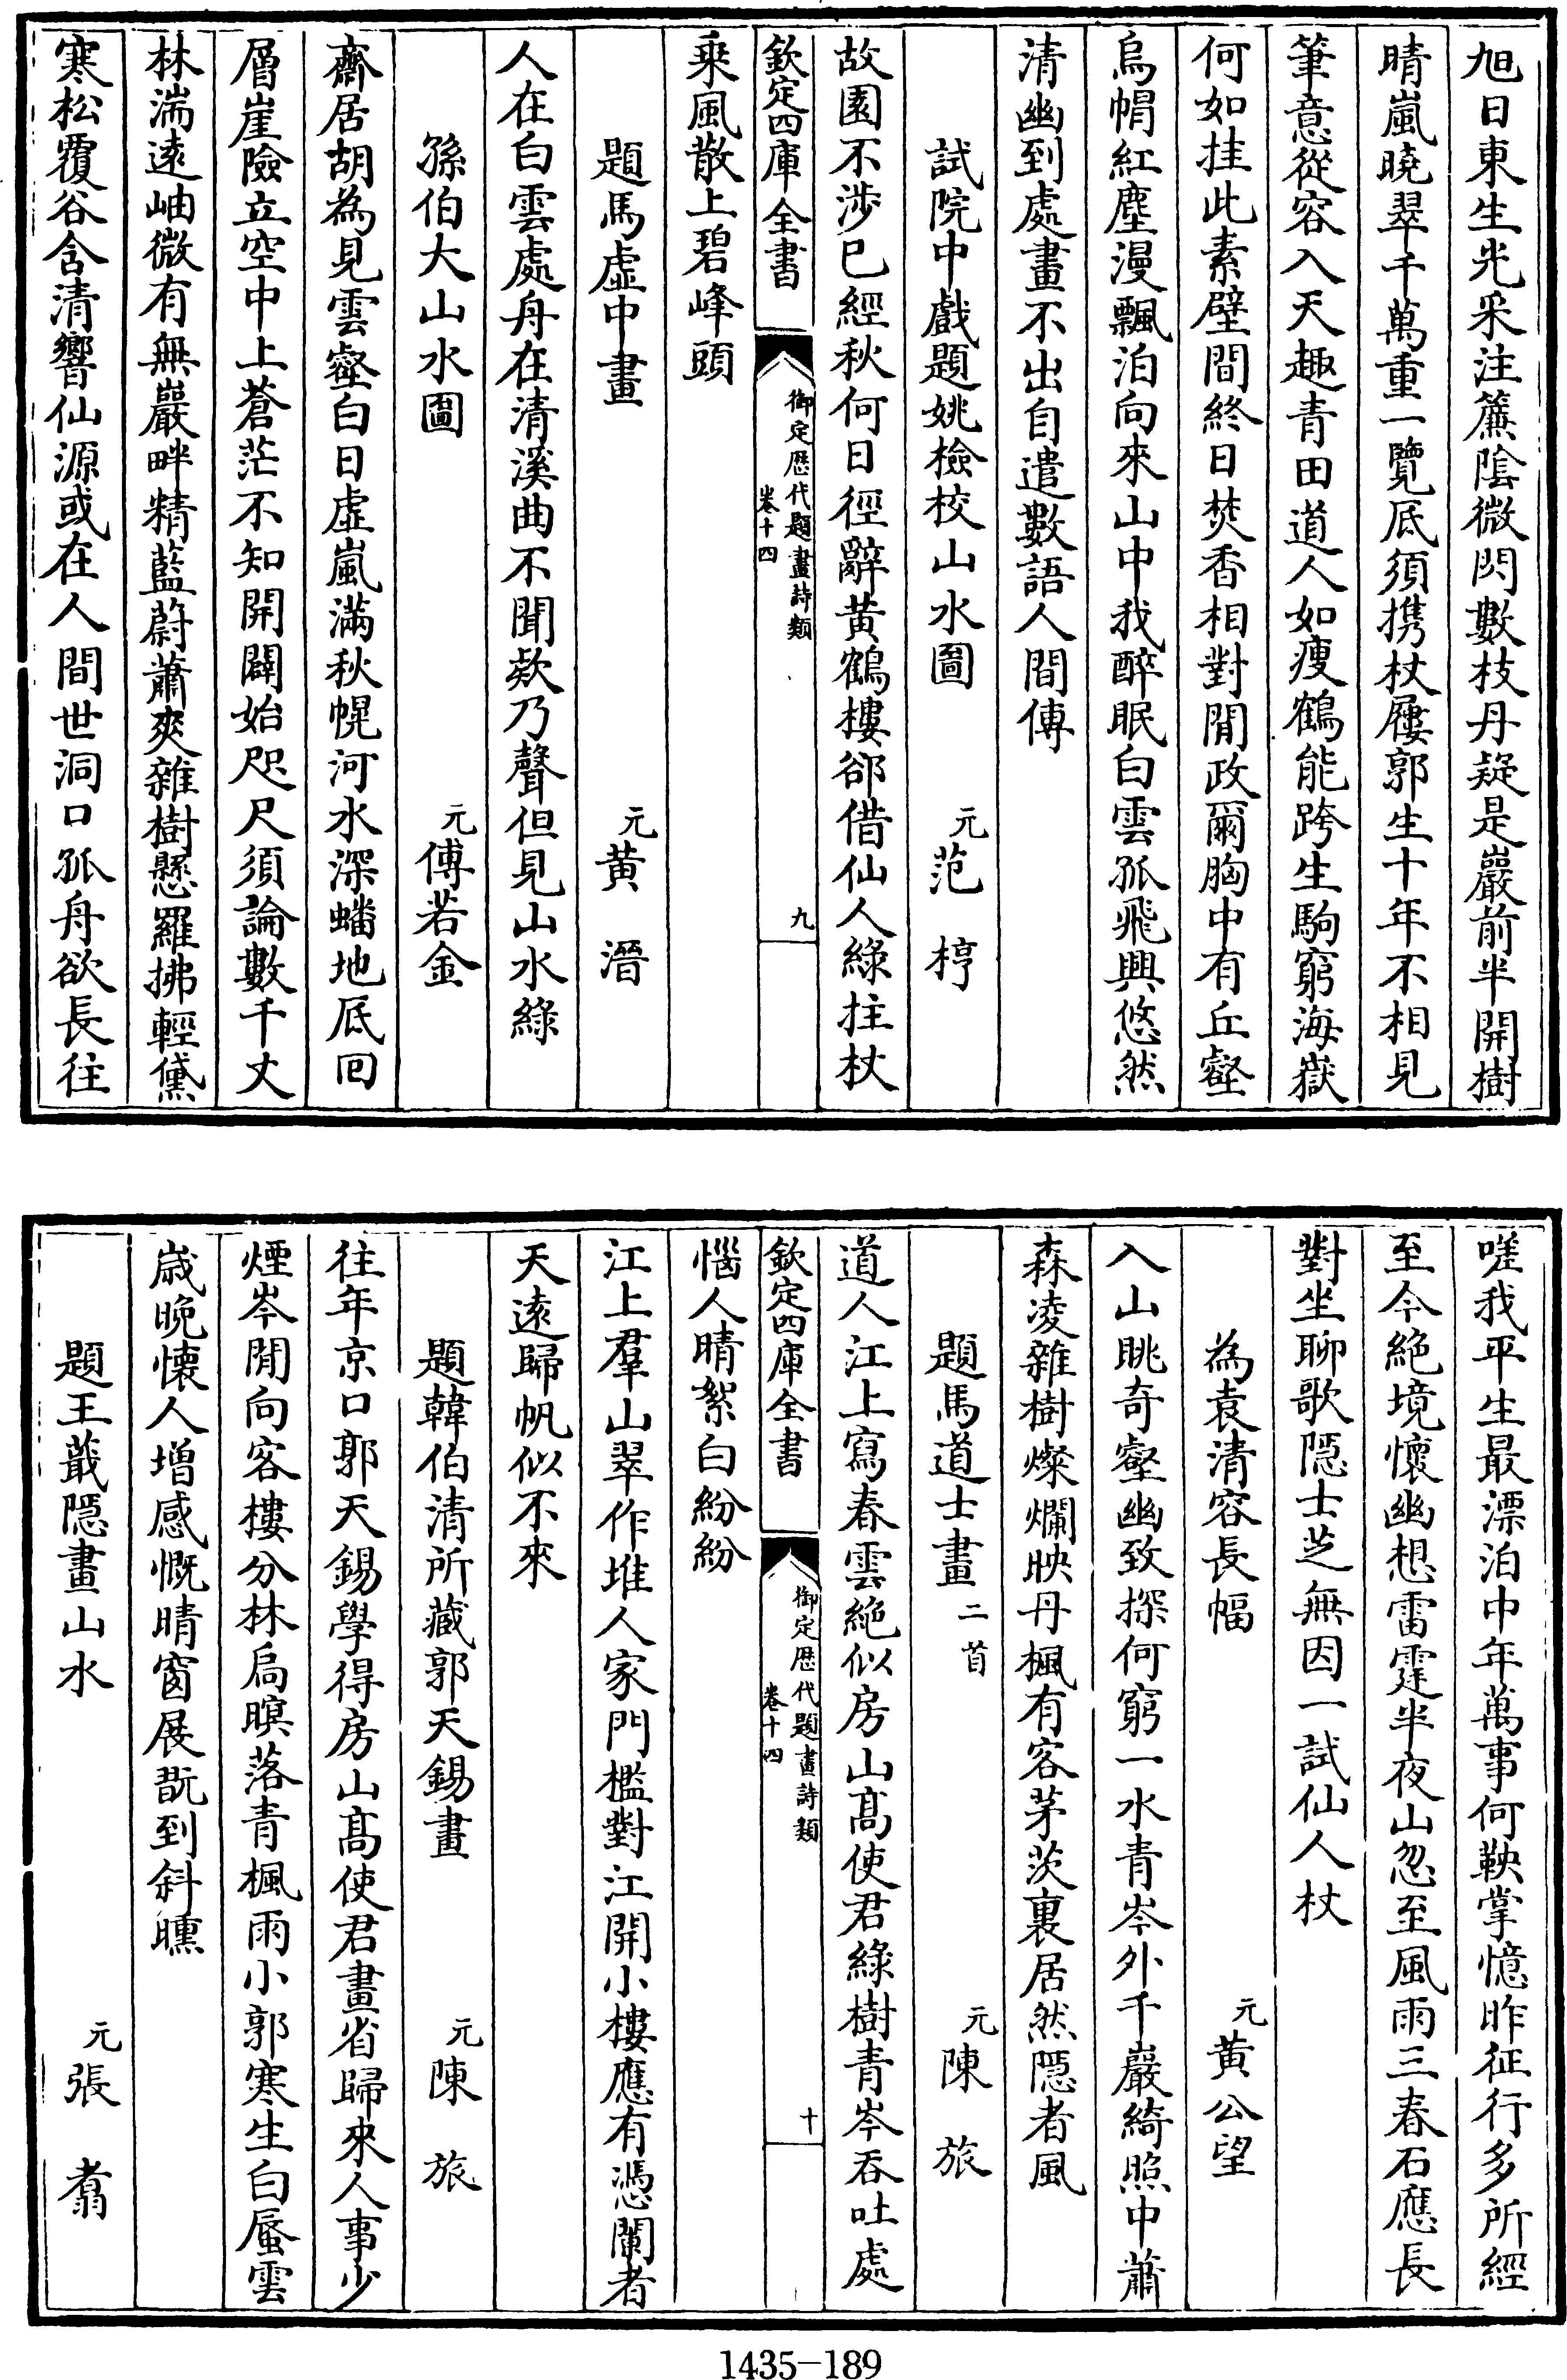 旭日東生光采注簾陰微閃數枝丹疑是巖前半開樹
晴嵐曉翠千萬重一覽底須携杖屨郭生十年不相見
筆意從容入天趣青田道人如瘦鶴能跨生駒窮海嶽
何如挂此素壁間終日焚香相對閒政爾胸中有丘壑
烏帽紅塵漫飄泊向來山中我醉眠白雲孤飛興悠然
清幽到處畫不出自遣數語人間傳
試院中戲題姚檢校山水圖 元范梈
故園不涉已經秋何日徑辭黃鶴樓郤借仙人綠拄杖
欽定四庫全書 御定歴代題畫詩類 卷十四 九
乗風散上碧峰頭
題馬虛中畫 元黃溍
人在白雲處舟在清溪曲不聞欸乃聲但見山水綠
孫伯大山水圖 元傅若金
齋居胡為見雲壑白日虛嵐滿秋幌河水深蟠地底回
層崖險立空中上蒼茫不知開闢始咫尺須論數千丈
林湍遠岫微有無巖畔精藍蔚蕭爽雜樹懸羅拂輕黛
寒松覆谷含清響仙源或在人間世洞口孤舟欲長往
嗟我平生最漂泊中年萬事何鞅掌憶昨征行多所經
至今絶境懷幽想雷霆半夜山忽至風雨三春石應長
對坐聊歌隠士芝無因一試仙人杖
為袁清容長幅 元黃公望
入山眺奇壑幽致探何窮一水青岑外千巖綺照中蕭
森凌雜樹燦爛映丹楓有客茅茨裏居然隠者風
題馬道士畫二首 元陳旅
道人江上寫春雲絶似房山髙使君綠樹青岑吞吐處
欽定四庫全書 御定歴代題畫詩類 卷十四 十
惱人晴絮白紛紛
江上羣山翠作堆人家門檻對江開小樓應有憑闌者
天遠歸帆似不來
題韓伯清所藏郭天錫畫 元陳旅
往年京口郭天錫學得房山髙使君畫省歸來人事少
煙岑閒向客樓分林扃暝落青楓雨小郭寒生白蜃雲
歲晩懷人増感慨晴窗展翫到斜曛
題王蕺隠畫山水 元張翥
1435-189